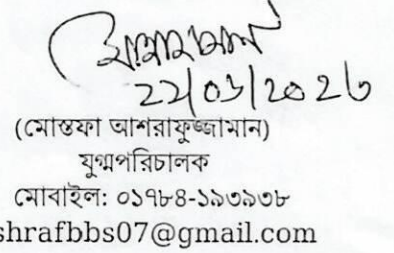 (মোস্তফা আশরাফুজ্জামান)
যুগ্মপরিচালক
মোবাইল: ০১৭৮৪-১৯৩৯৩৮
shrafbbs07@gmail.com